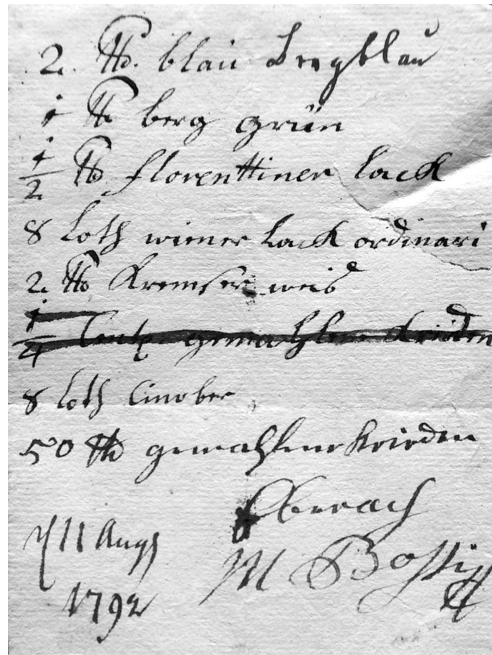 2. ℔. blau Bergblau
1 ℔ berg grün
1/2 ℔ florenttiner lack
8 loth wiener Lack ordinari
2. ℔ Kremser weis
1/4 Cent. gemahlene krieden
8 loth Cinober
50 ℔ gemahlene krieden
Ebrach
M Bossi
d 11 Augs
1792